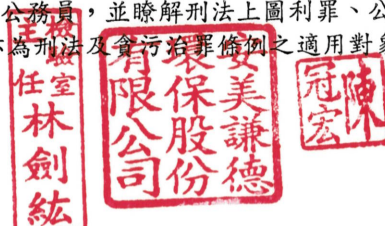 公務員，並瞭解刑法上圖利罪、公
亦為刑法及貪污治罪條例之適用對象
檢驗室
主任
林劍紘
安美謙德
環保股份
有限公司
陳
冠宏